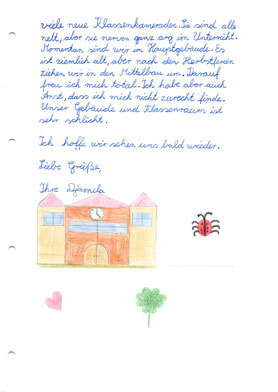 viele neue Klassenkamerader. Sie sind alle
nett, aber sie nerven ganz arg im Unterricht.
Momentan sind wir im Hauptgebäude. Es
ist ziemlich alt, aber nach den Herbstferien
ziehen wir in den Mittelbau um. Darauf
freu ich mich total. Ich habe aber auch
Angst, dass ich mich nicht zurecht finde.
Unser Gebäude und Klassenraum ist
sehr schlicht.
Ich hoffe wir sehen uns bald wieder.
Liebe Grüße,
Ihre Djamila